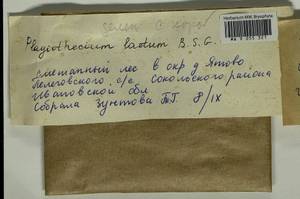 Herbarium MW, Bryophyta
Plagiothecium laetum B.S.G.
смешанный лес в окр д Ятово
Пелеговского с/с, Сокольского района
Ивановской обл
Собрала Зуктова Т.Г. 8/IX